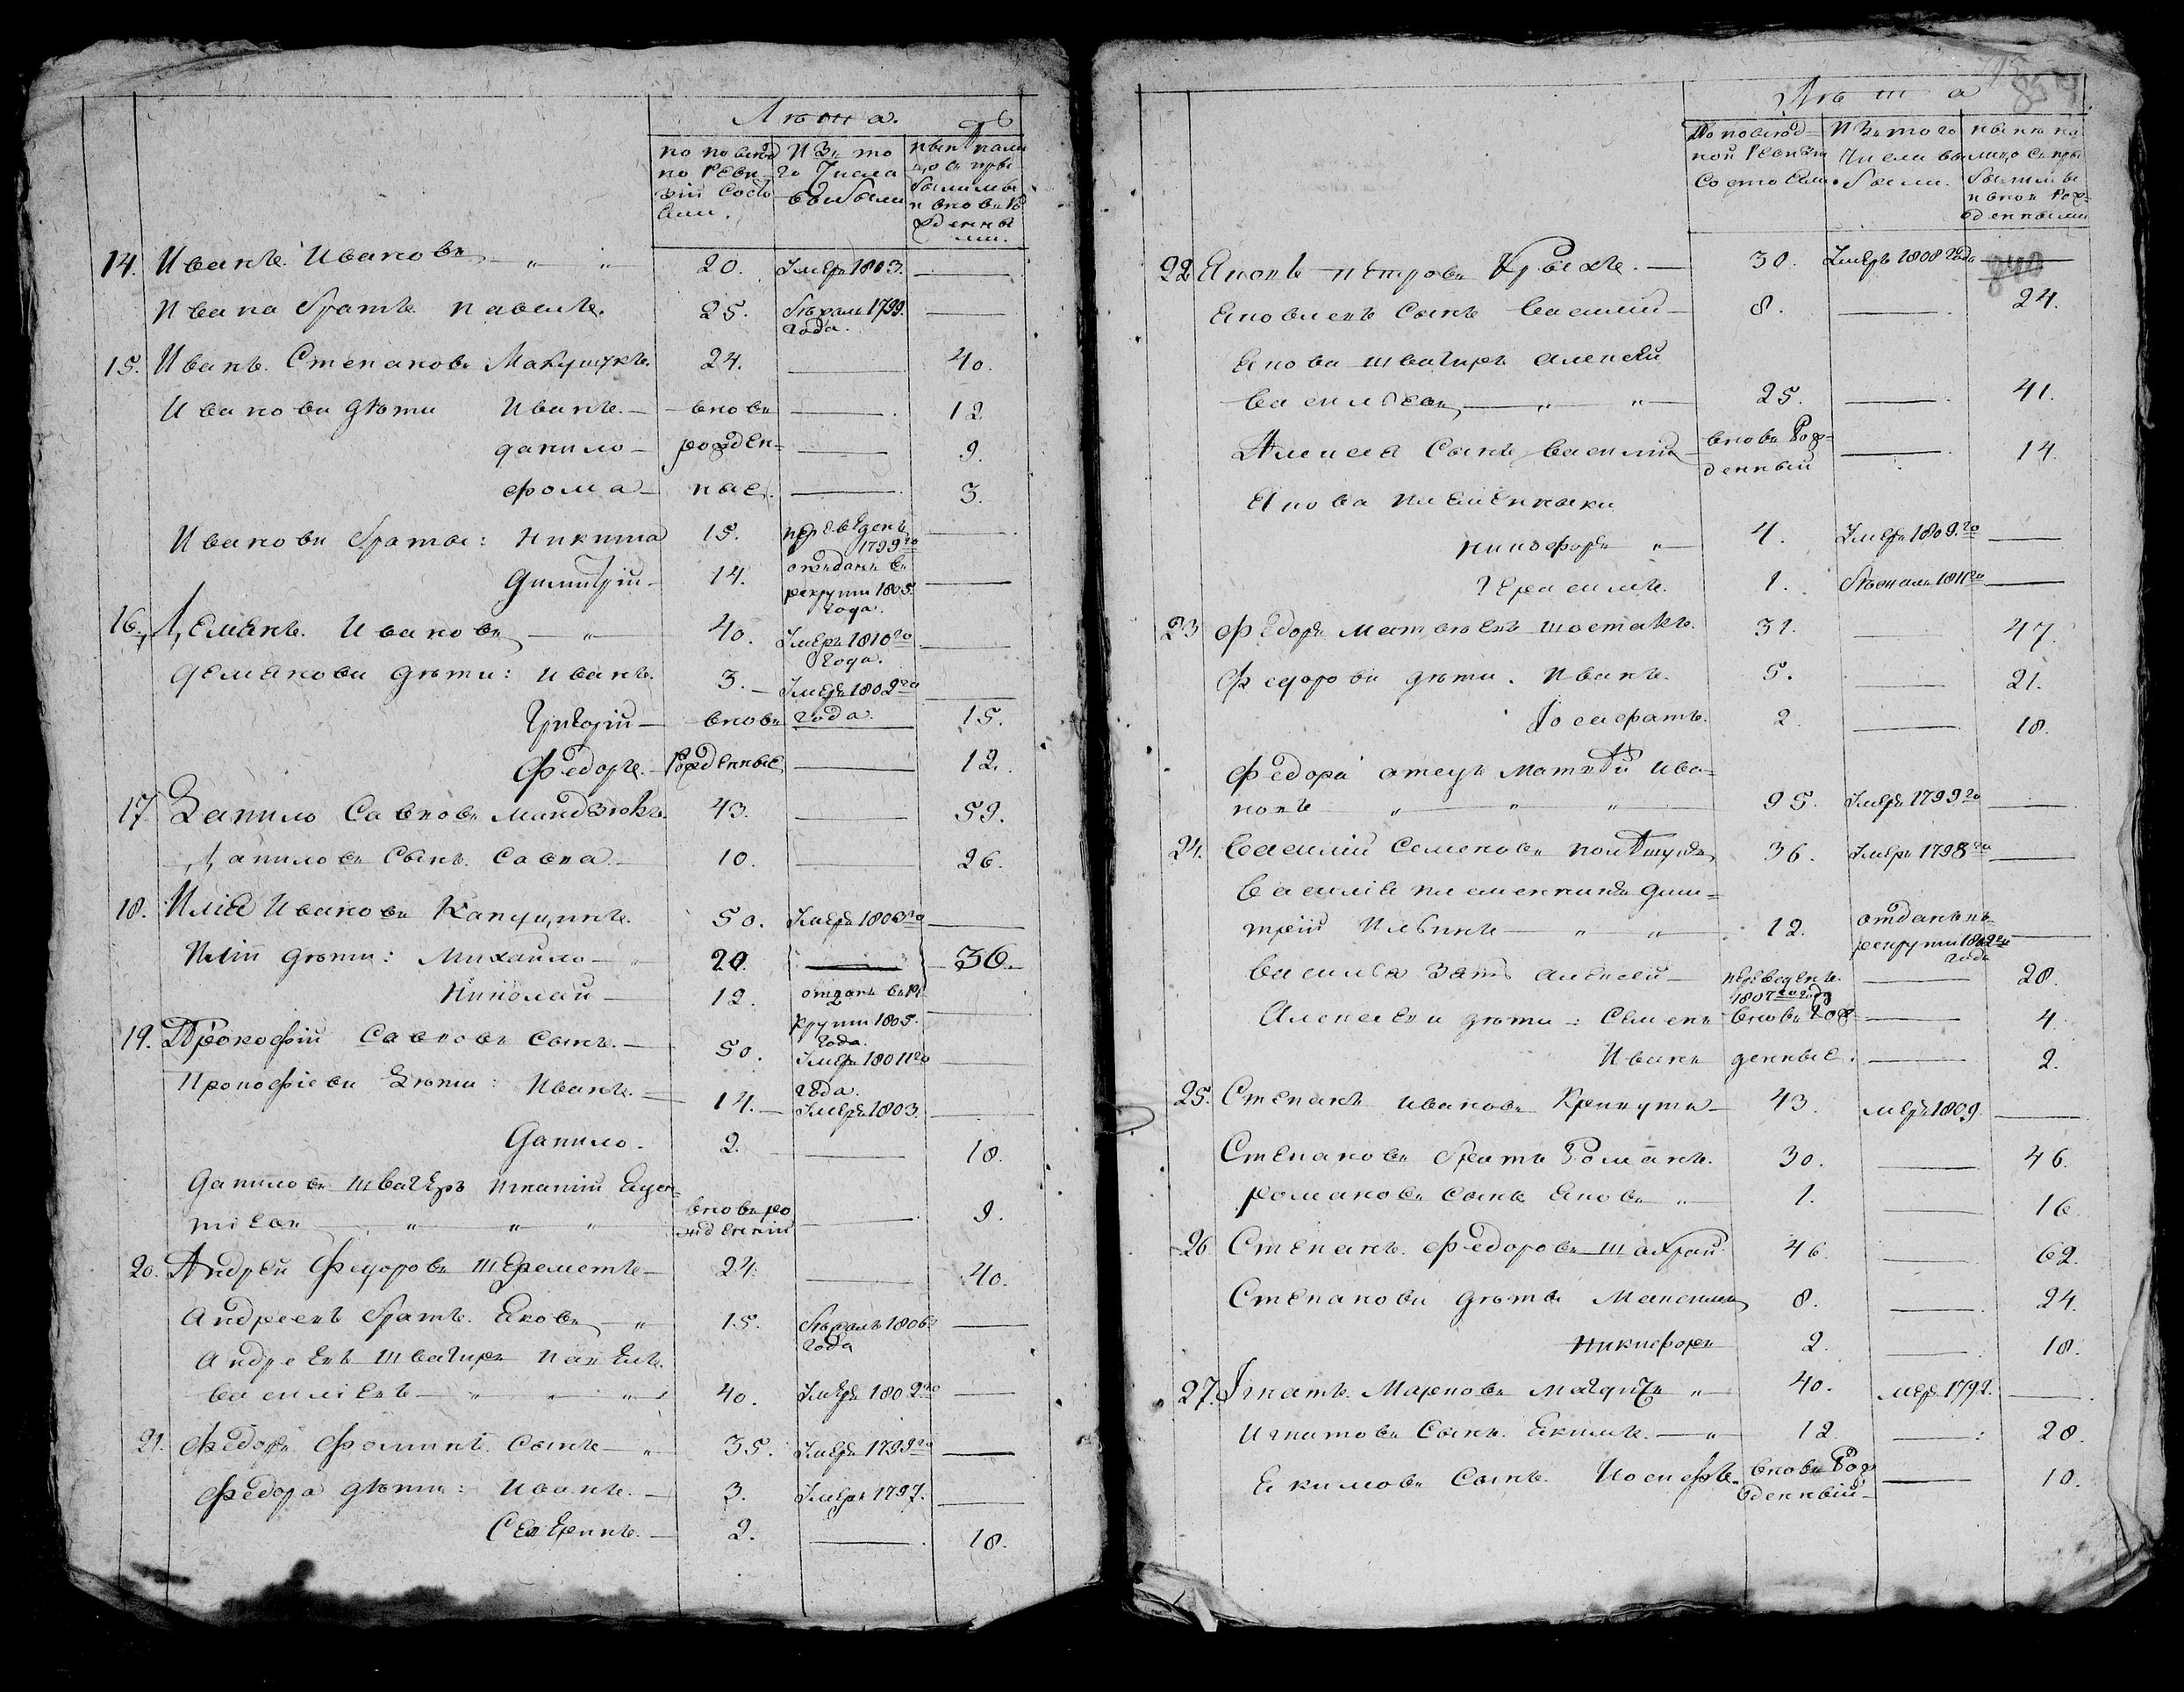 Лѣта.
по послѣд
ней Реви
зіи состо
яли.
Изъ то
го Числа
выбыли
нынѣ на ли
цо съ при
былыми
и вновь Ро
жденны
ми.
14. Иванъ Ивановъ — „ „ 20. Умеръ 1803. —
Ивана братъ павелъ. 25. бѣжалъ 1799. —
года.
15. Иванъ Степановъ 24. — 40.
Ивановы дѣти Иванъ. — вновь — 12
данило — рожден- — 9.
фома — ные. — 3.
Ивановы братья: Никита 15. переведенъ —
1799го
Димитрій — 14. отданъ въ —
рекруты 1805.
года.
16. Деменъ Ивановъ — „ — 40. Умеръ 1810го —
года.
Деменовы дѣти: иванъ. 3. — Умеръ 1809го —
Григорій — вновь года. 15.
Федоръ. — Рожденные — 12.
17. Данило Савковъ 43. — 59.
Даниловъ Сынъ Савка — 10. — 26.
18. Илія Ивановъ Капуцинъ. 50. Умеръ 1806го —
Иліи дѣти: Михайло — „ 20. — 36.
Николай — 12. отданъ въ ре —
круты 1805.
года.
19. Прокофій Савковъ сынъ. — 50. Умеръ 1801го —
года.
Прокофіевы Дѣти: Иванъ. — 14. — Умеръ 1803. —
Данило. 2. — 18.
Даниловъ швагеръ игнатій
„ „ „ вновь ро — 9.
жденній
20. Андрей Федоровъ Шереметъ — 24. — 40.
Андреевъ братъ. Яковъ — „ 15. бѣжалъ 1806го —
года
Андреевъ швагиръ павелъ.
василіевъ — „ „ „ 40. Умеръ 1802го —
21. Федоръ Фоминъ Сынъ — „ 35. Умеръ 1799го —
Федора дѣти: Иванъ. — 3. Умеръ 1797. —
Северинъ. — 2. — 18.
Лѣта
857
По послѣд-
ней Ревизіи
состояли.
Изъ того
Числа вы
были.
нынѣ на
лицо съ при
былыми
и вновь Рож-
денными
840
22 Яковъ петровъ — 30. Умеръ 1808 года —
Яковлевъ сынъ Василій — 8. — 24.
Якова швагиръ алексей
васильевъ — „ „ — 25. — 41.
Алексея Сынъ василій вновь Рож- — 14.
денный
Якова племенники
никофоръ „ — 4. Умеръ 1809.го —
Герасимъ. 1. бѣжалъ 1811го —
23 Федоръ матвѣевъ шостакъ. 31. — 47.
Федоровы дѣти. Иванъ. 5. — 21.
Іосафатъ. 2. — 18.
Федора отецъ матвѣй ива-
новъ „ „ „ 95. Умеръ 1799го —
24. Василій Семеновъ 36. Умеръ 1798го —
Василія племенникъ дми-
трій Ильинъ — „ „ — 12. отданъ въ —
рекруты 1802го
года
Василья Зять алексей — переведенъ. — 28.
1807го году
Алексеевы дѣти: Семенъ вновь Рож- — 4.
Иванъ денные. — 2.
25. Степанъ ивановъ 43. меръ 1809. —
Степановъ братъ Романъ. 30. — 46.
романовъ сынъ Яковъ „ 1. — 16.
26. Степанъ федоровъ 46. — 62.
Степановы дѣти Максимъ 8. — 24.
никифоръ 2. — 18.
27. Игнатъ Марковъ „ — 40. меръ 1792. —
Игнатовъ Сынъ. Екимъ. — „ 12. — 28.
Екимовъ Сынъ. Иосифъ. вновь Рож — 10.
денный —